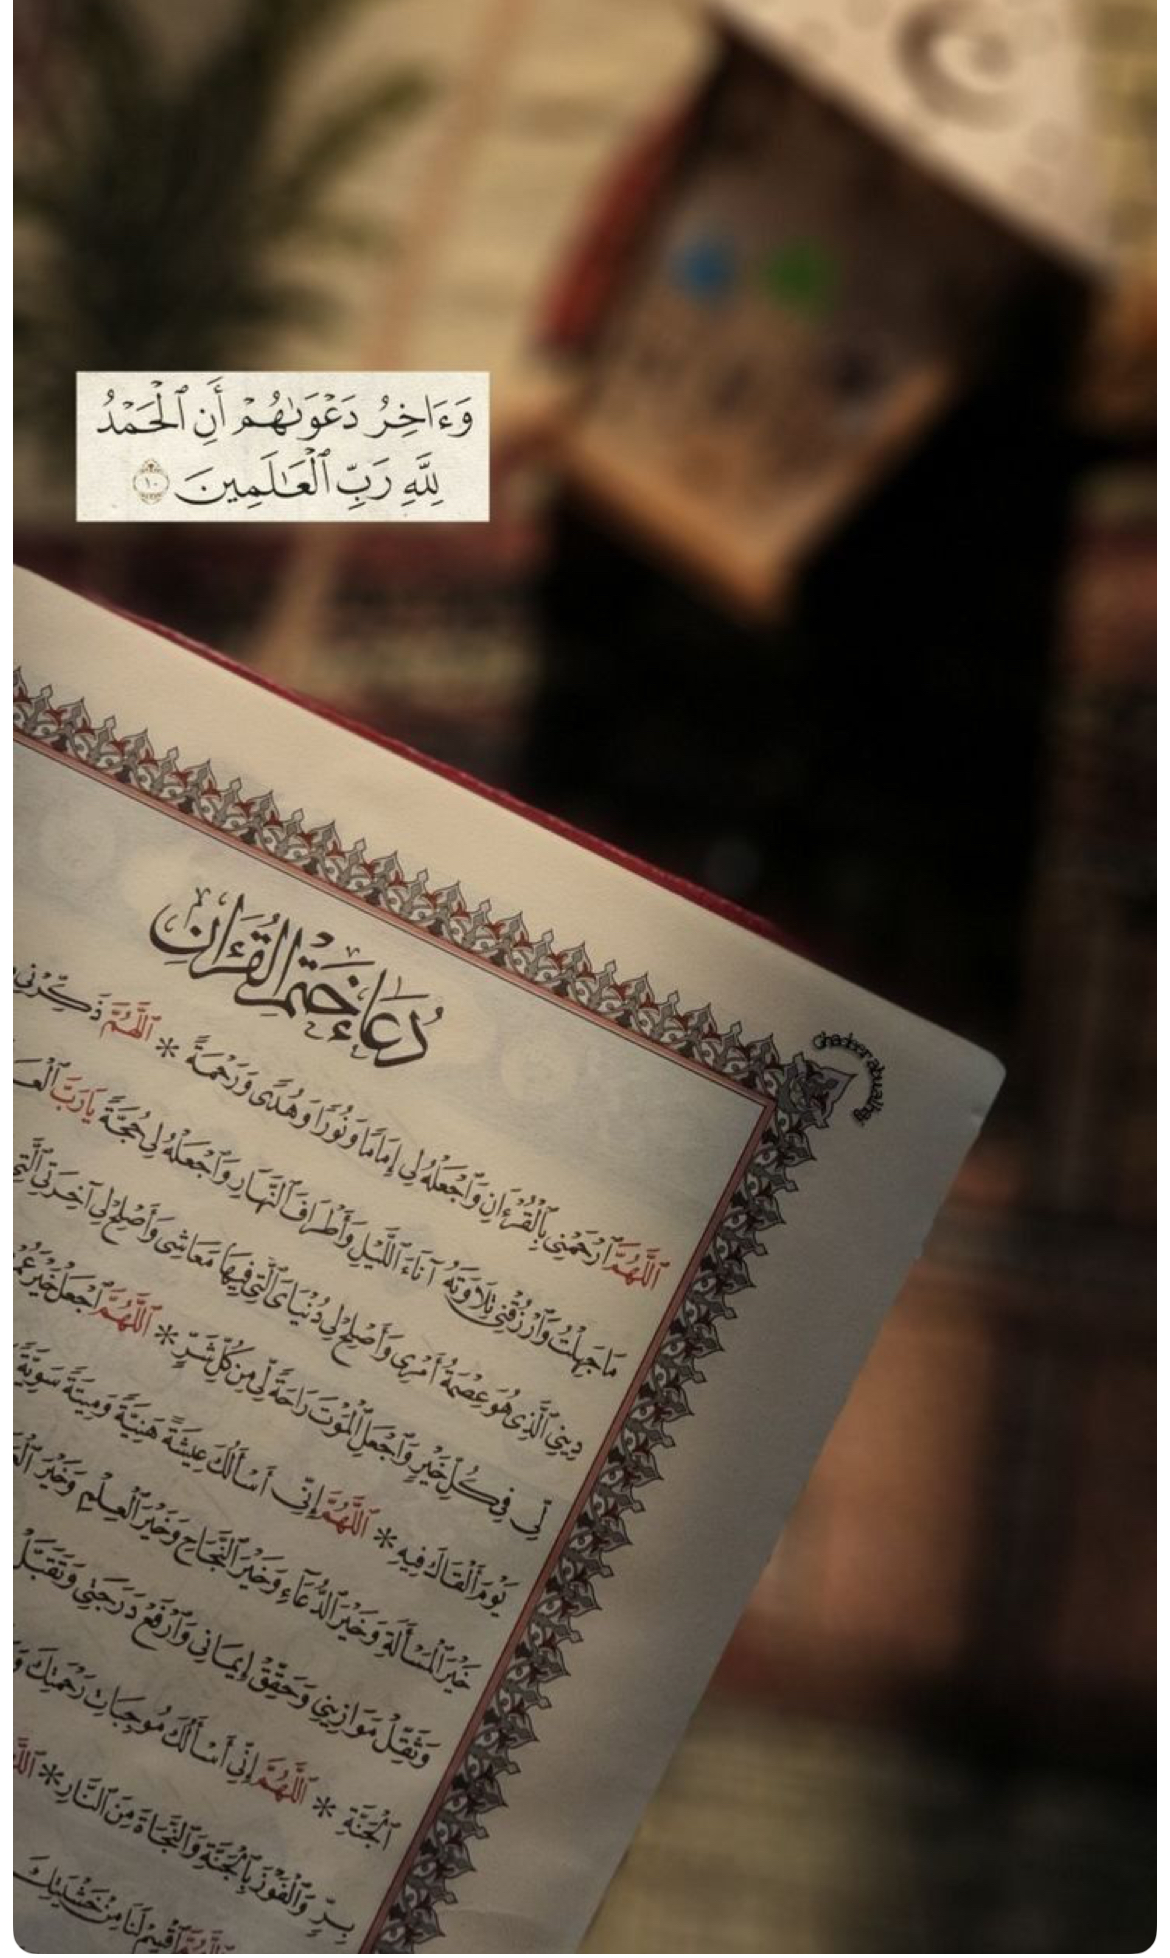 وَءَاخِرُ دَعْوَىٰهُمْ أَنِ ٱلْحَمْدُ
لِلَّهِ رَبِّ ٱلْعَٰلَمِينَ ١٠
دُعَاءُ خَتْمِ الْقُرْءَانِ
Ghadeer abualhaj
اَللَّهُمَّ ٱرْحَمْنِي بِالْقُرْءَانِ وَٱجْعَلْهُ لِي إِمَامًا وَنُورًا وَهُدًى وَرَحْمَةً * اَللَّهُمَّ ذَكِّرْنِي
مَاجَهِلْتُ وَٱرْزُقْنِي تِلَاوَتَهُ آنَاءَ اللَّيْلِ وَأَطْرَافَ النَّهَارِ وَٱجْعَلْهُ لِي حُجَّةً يَارَبَّ
دِينِي الَّذِي هُوَ عِصْمَةُ أَمْرِي وَأَصْلِحْ لِي دُنْيَايَ الَّتِي فِيهَا مَعَاشِي وَأَصْلِحْ لِي آخِرَتِي الَّتِي
لِّي فِي كُلِّ خَيْرٍ وَٱجْعَلِ الْمَوْتَ رَاحَةً لِّي مِن كُلِّ شَرٍّ * اَللَّهُمَّ ٱجْعَلْ خَيْرَ
يَوْمَ أَلْقَاكَ فِيهِ * اَللَّهُمَّ إِنِّي أَسْأَلُكَ عِيشَةً هَنِيَّةً وَمِيتَةً سَوِيَّةً
خَيْرَ الْمَسْأَلَةِ وَخَيْرَ الدُّعَاءِ وَخَيْرَ النَّجَاحِ وَخَيْرَ الْعِلْمِ وَخَيْرَ
وَثَقِّلْ مَوَازِينِي وَحَقِّقْ إِيمَانِي وَٱرْفَعْ دَرَجَتِي وَتَقَبَّلْ
الْجَنَّةِ * اَللَّهُمَّ إِنِّي أَسْأَلُكَ مُوجِبَاتِ رَحْمَتِكَ
بِرٍّ وَالْفَوْزَ بِالْجَنَّةِ وَالنَّجَاةَ مِنَ النَّارِ *
اَللَّهُمَّ ٱقْسِمْ لَنَا مِنْ خَشْيَتِكَ